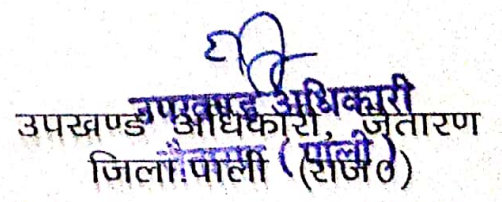 उपखण्ड अधिकारी
उपखण्ड अधिकारी, जैतारण
जैतारण (पाली)
जिला पाली (राज०)